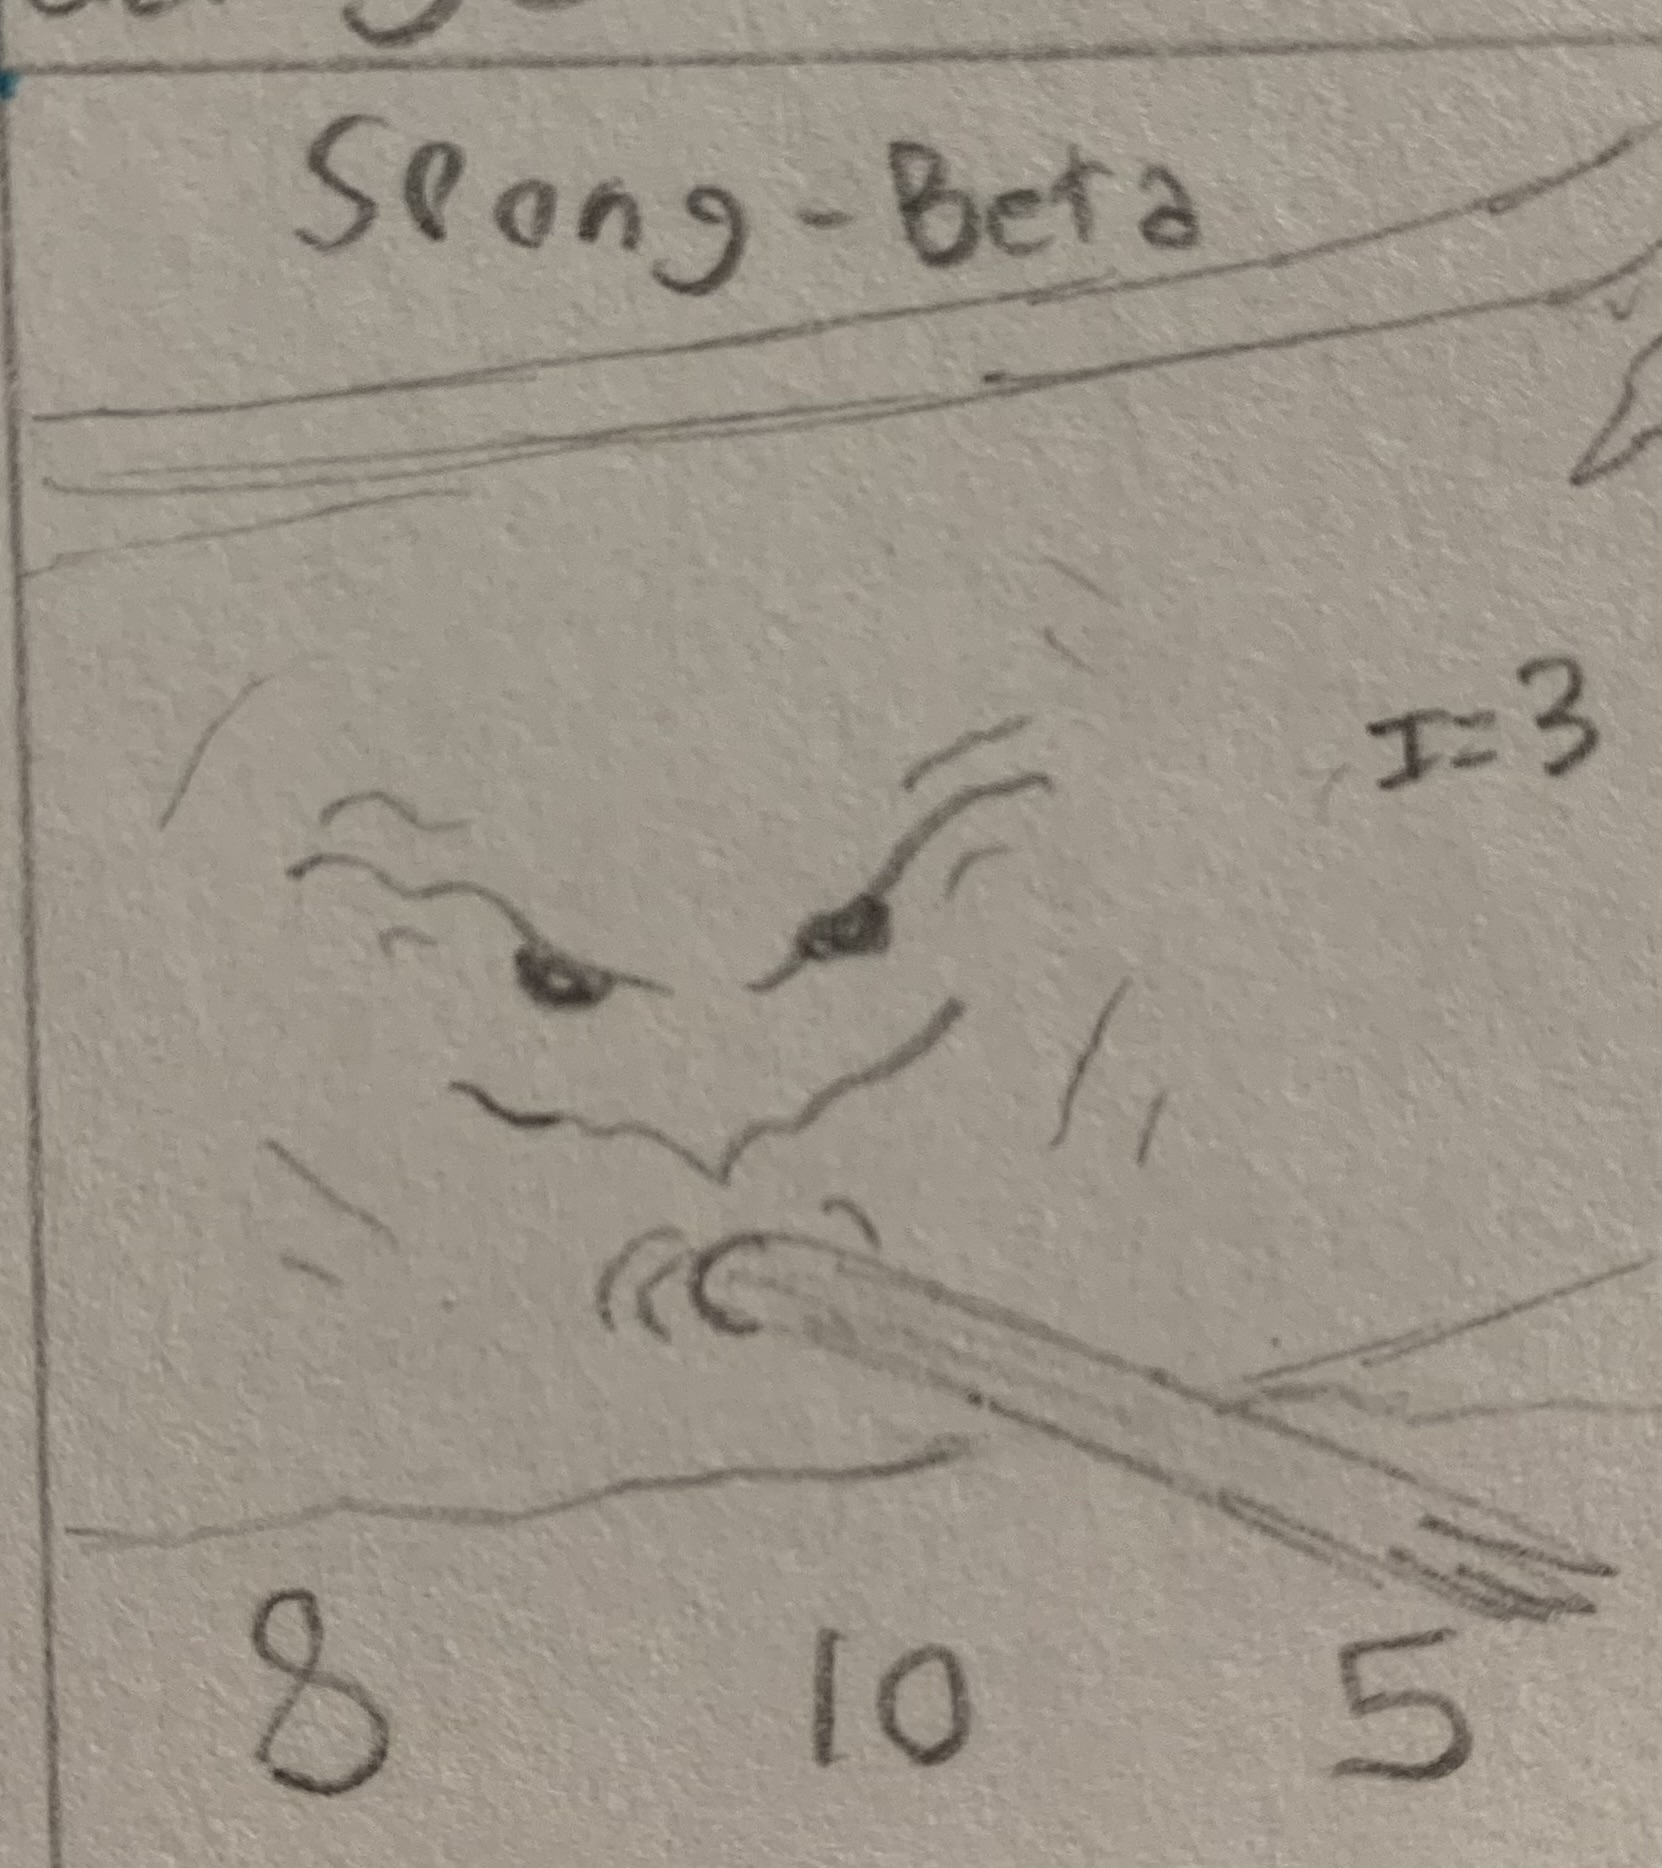 Spong-Beta
I=3
8 10 5